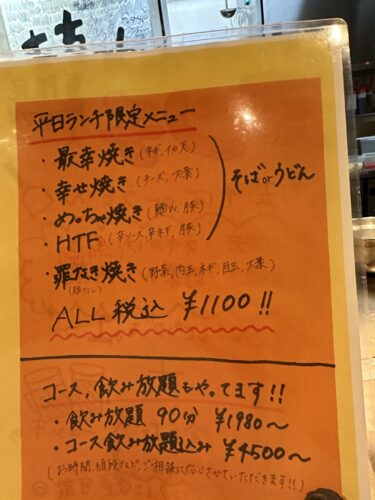 平日ランチ限定メニュー
・最幸焼き(ネギ,イカ天)
・幸せ焼き(チーズ,大葉)
・めっちゃ焼き(麺W,豚)
・HTF(辛ソース,辛ネギ,豚)
そばorうどん
・罪なき焼き(野菜,肉玉,ネギ,目玉,大葉)
(麺なし)
ALL 税込 ¥1100!!
コース,飲み放題もやってます!!
・飲み放題 90分 ¥1980〜
・コース飲み放題込み ¥4500〜
(お時間,値段など,ご相談に応じさせていただきます!!)